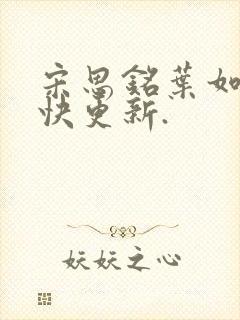 宋思銘葉如
快更新.
妖妖之心